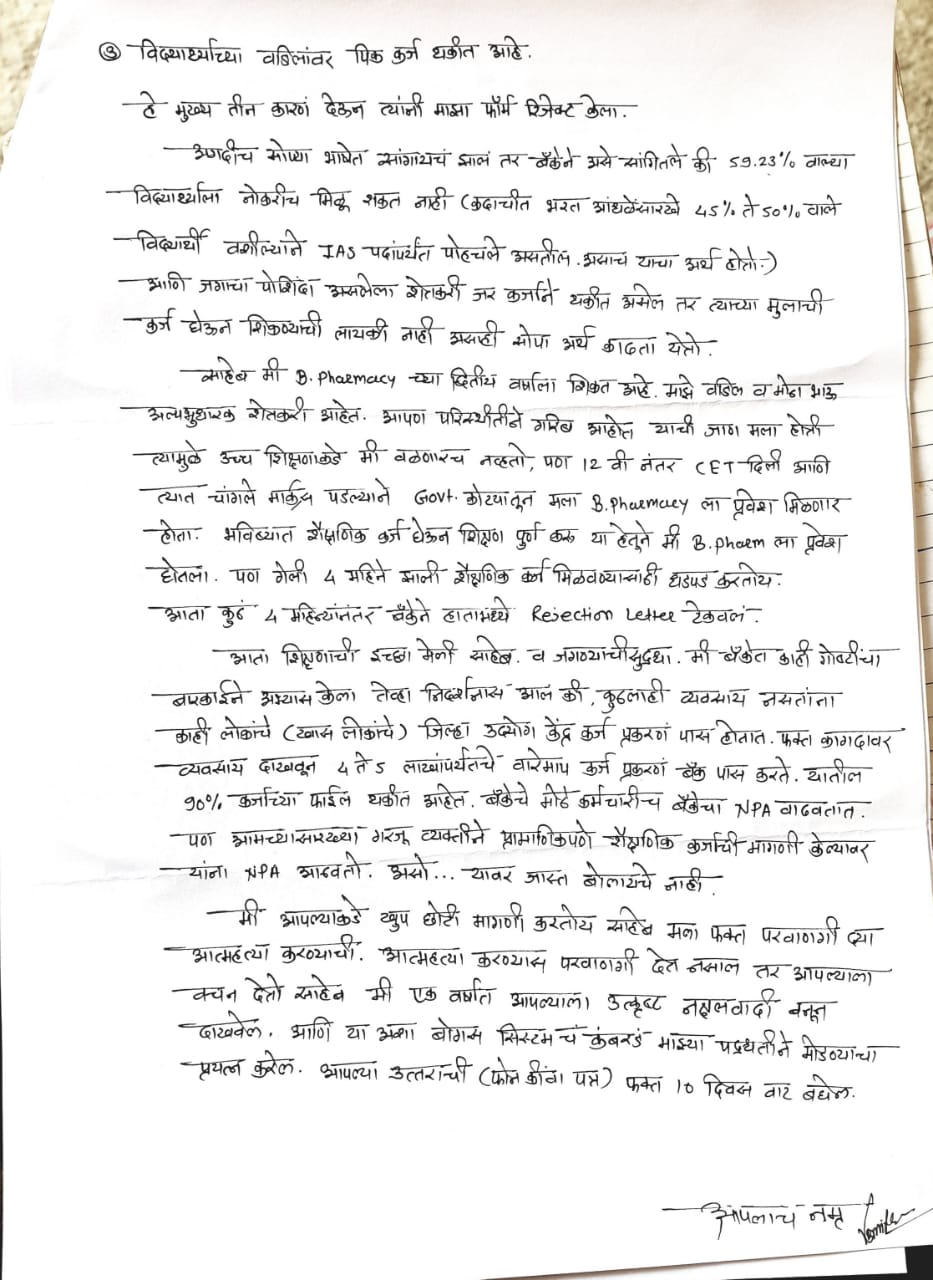 ③ विद्यार्थ्याच्या वडिलांवर पिक कर्ज थकीत आहे.
हे मुख्य तीन कारणं देऊन त्यांनी माझा फॉर्म रिजेक्ट केला.
अगदीच सोप्या भाषेत सांगायचं झालं तर बँकेने असे सांगितले की 59.23% वाल्या
विद्यार्थ्याला नोकरीच मिळू शकत नाही (कदाचीत भरत आंधळेंसारखे 45% ते 50% वाले
विद्यार्थी वशील्याने IAS पदांपर्यंत पोहचले असतील. असाच याचा अर्थ होतो.)
आणि जगाचा पोशिंदा असलेला शेतकरी जर कर्जाने थकीत असेल तर त्याच्या मुलाची
कर्ज घेऊन शिकण्याची लायकी नाही असाही सोपा अर्थ काढता येतो.
साहेब मी B. Pharmacy च्या द्वितीय वर्षाला शिकत आहे. माझे वडिल व मोठा भाऊ
अल्पभुधारक शेतकरी आहेत. आपण परिस्थीतीने गरिब आहोत याची जाण मला होती
त्यामुळे उच्च शिक्षणाकडे मी वळणारच नव्हतो, पण 12 वी नंतर CET दिली आणि
त्यात चांगले मार्क्स पडल्याने Govt. कोट्यातून मला B. Pharmacy ला प्रवेश मिळणार
होता. भविष्यात शैक्षणिक कर्ज घेऊन शिक्षण पुर्ण करू या हेतुने मी B. Pharm ला प्रवेश
घेतला. पण गेली 4 महिने झाली शैक्षणिक कर्ज मिळवण्यासाठी धडपड करतोय.
आता कुठं 4 महिन्यांनंतर बँकेने हातामध्ये Rejection Letter टेकवलं.
आता शिक्षणाची इच्छा मेली साहेब. व जगण्याचीसुद्धा. मी बँकेत काही गोष्टींचा
बारकाईने अभ्यास केला तेव्हा निदर्शनास आलं की, कुठलाही व्यवसाय नसतांना
काही लोकांचे (खास लोकांचे) जिल्हा उद्योग केंद्र कर्ज प्रकरणं पास होतात. फक्त कागदावर
व्यवसाय दाखवून 4 ते 5 लाखांपर्यंतचे वारेमाप कर्ज प्रकरणं बँक पास करते. यातील
90% कर्जाच्या फाईल थकीत आहेत. बँकेचे मोठे कर्मचारीच बँकेचा NPA वाढवतात.
पण आमच्यासारख्या गरजू व्यक्तीने प्रामाणिकपणे शैक्षणिक कर्जाची मागणी केल्यावर
यांना NPA आठवतो. असो... यावर जास्त बोलायचे नाही.
मी आपल्याकडे खुप छोटी मागणी करतोय साहेब मला फक्त परवाणगी द्या
आत्महत्या करण्याची. आत्महत्या करण्यास परवाणगी देत नसाल तर आपल्याला
वचन देतो साहेब मी एक वर्षात आपल्याला उत्कृष्ट नक्षलवादी बनून
दाखवेल. आणि या अशा बोगस सिस्टमचं कंबरडं माझ्या पद्धतीने मोडण्याचा
प्रयत्न करेल. आपल्या उत्तराची (फोन कींवा पत्र) फक्त 10 दिवस वाट बघेल.
आपलाच नम्र